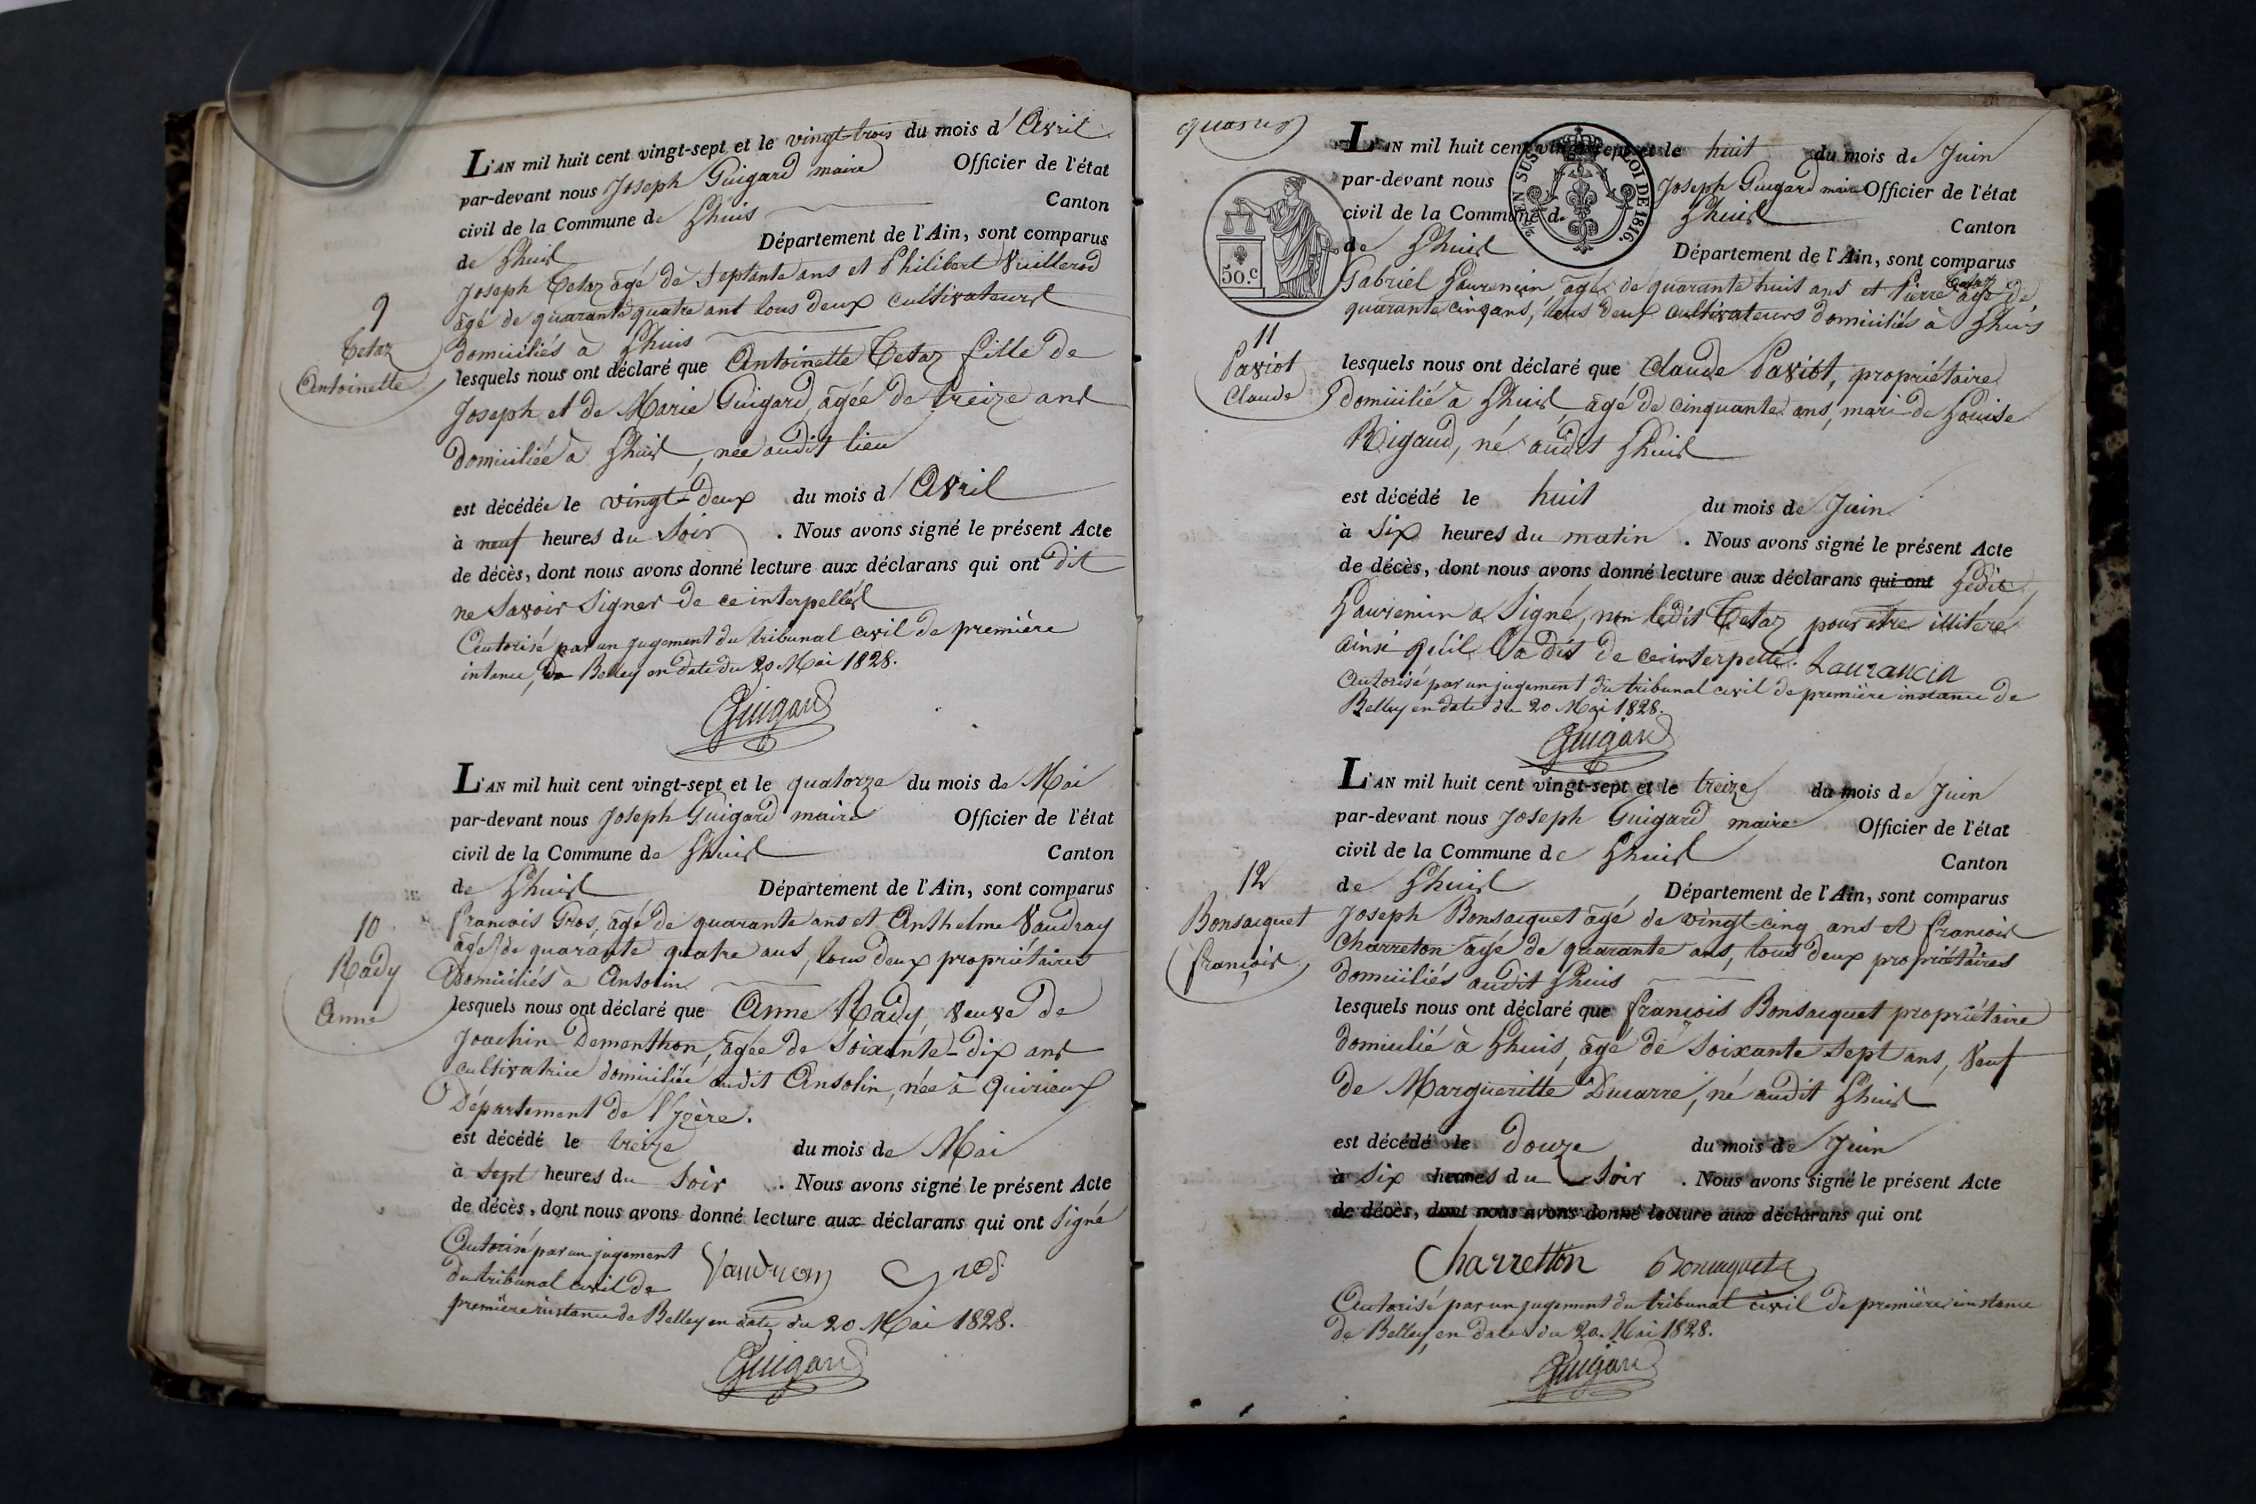 L'AN mil huit cent vingt-sept et le vingt-trois du mois d'Avril
par-devant nous Joseph Guigard maire Officier de l'état
civil de la Commune de Lhuis Canton
de Lhuis Département de l'Ain, sont comparus
Joseph Tetaz âgé de Septante ans et Philibert Vuillerod
âgé de quarante quatre ans tous deux cultivateurs
domiciliés à Lhuis
9
Tetaz
Antoinette
lesquels nous ont déclaré que Antoinette Tetaz fille de
Joseph et de Marie Guigard, âgée de treize ans
domiciliée à Lhuis, née audit lieu
est décédée le vingt-deux du mois d'Avril
à neuf heures du Soir . Nous avons signé le présent Acte
de décès, dont nous avons donné lecture aux déclarans qui ont dit
ne Savoir Signer de ce interpellés
Autorisé par un jugement du tribunal civil de première
intance, de Belley en date du 20 Mai 1828.
Guigard
L'AN mil huit cent vingt-sept et le quatorze du mois de Mai
par-devant nous Joseph Guigard maire Officier de l'état
civil de la Commune de Lhuis Canton
de Lhuis Département de l'Ain, sont comparus
françois Gros, âgé de quarante ans et Anthelme Vaudray
âgé de quarante quatre ans, tous deux propriétaires
Domiciliés à Ansolin
10
Rady
Anne
lesquels nous ont déclaré que Anne Rady, veuve de
Joachin Dementhon, âgée de Soixante-dix ans
cultivatrice domiciliée audit Ansolin, née à Quirieux
Département de l'Izère.
est décédé le treize du mois de Mai
à Sept heures du Soir . Nous avons signé le présent Acte
de décès, dont nous avons donné lecture aux déclarans qui ont Signé
Autorisé par un jugement
du tribunal civil de
Gros
première instance de Belley en date du 20 Mai 1828.
Guigard
50.c
EN SUS LOI DE 1816.
L'AN mil huit cent vingt-sept et le huit du mois de Juin
par-devant nous Joseph Guigard maire Officier de l'état
civil de la Commune de Lhuis Canton
de Lhuis Département de l'Ain, sont comparus
Gabriël Laurencin âgé de quarante huit ans et Pierre Tetaz âgé de
quarante cinq ans, tous deux cultivateurs domiciliés à Lhuis
11
Paviot
Claude
lesquels nous ont déclaré que Claude Paviot, propriétaire
domicilié à Lhuis âgé de cinquante ans, mari de Louise
Rigaud, né audit Lhuis
est décédé le huit du mois de Juin
à Six heures du matin . Nous avons signé le présent Acte
de décès, dont nous avons donné lecture aux déclarans qui ont Ledit
Laurencin a Signé, non ledit Tetaz pour etre illitéré
ainsi qu'il l'a dit de ce interpellé. Laurancin
Autorisé par un jugement du tribunal civil de première instance de
Belley en date du 20 Mai 1828.
Guigard
L'AN mil huit cent vingt-sept et le treize du mois de Juin
par-devant nous Joseph Guigard maire Officier de l'état
civil de la Commune de Lhuis Canton
de Lhuis Département de l'Ain, sont comparus
Joseph Bonsacquet âgé de vingt-cinq ans et françois
Charreton âgé de quarante ans, tous deux propriétaires
domiciliés audit Lhuis
12
Bonsacquet
françois
lesquels nous ont déclaré que françois Bonsacquet propriétaire
domicilié à Lhuis, âgé de Soixante Sept ans, Veuf
de Margueritte Ducarre, né audit Lhuis
est décédé le Douze du mois de Juin
à Six heures du Soir . Nous avons signé le présent Acte
de décès, dont nous avons donné lecture aux déclarans qui ont
Charretton Bonsaquet
Autorisé par un jugement du tribunal civil de première instance
de Belley, en date du 20 Mai 1828.
Guigard